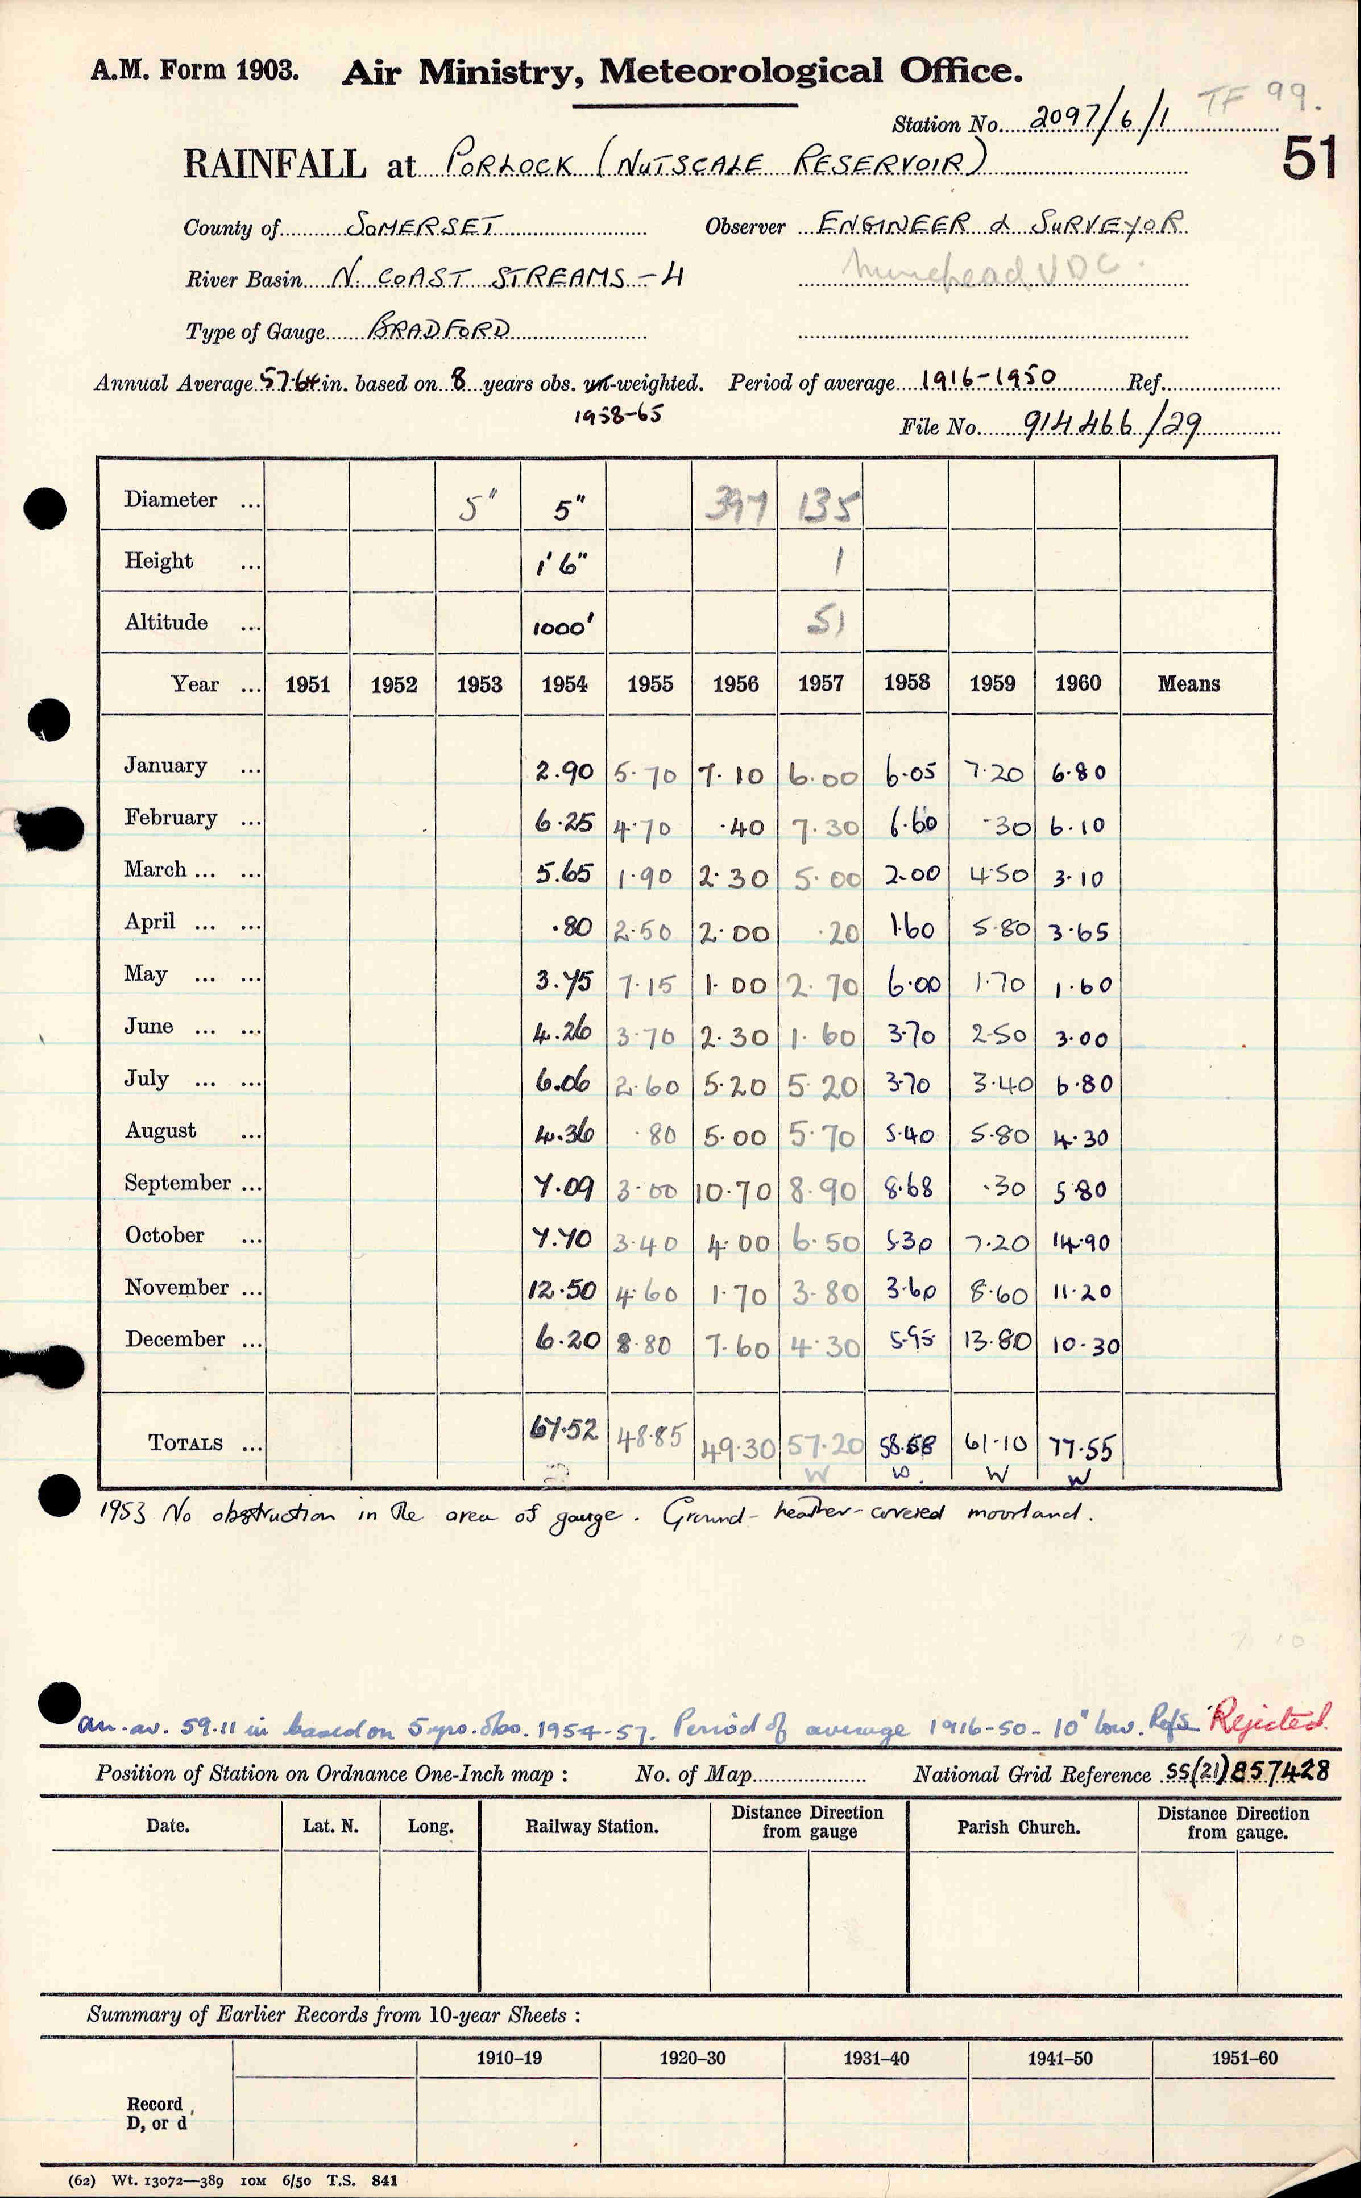 A.M. Form 1903. Air Ministry, Meteorological Office.
TF 99.
Station No. 2097/6/1
51
RAINFALL at PORLOCK (NUTSCALE RESERVOIR)
County of SOMERSET Observer ENGINEER & SURVEYOR
River Basin N. COAST STREAMS - 4 Minehead UDC.
Type of Gauge BRADFORD
Annual Average 57.64 in. based on 8 years obs. un-weighted. Period of average 1916-1950 Ref.
1958-65
File No. 914466/29
Diameter ... 5" 5" 397 135
Height ... 1'6" 1
Altitude ... 1000' 51
Year ... 1951 1952 1953 1954 1955 1956 1957 1958 1959 1960 Means
January ... 2.90 5.70 7.10 6.00 6.05 7.20 6.80
February ... 6.25 4.70 .40 7.30 6.60 .30 6.10
March ... ... 5.65 1.90 2.30 5.00 2.00 4.50 3.10
April ... ... .80 2.50 2.00 .20 1.60 5.80 3.65
May ... ... 3.75 7.15 1.00 2.70 6.00 1.70 1.60
June ... ... 4.26 3.70 2.30 1.60 3.70 2.50 3.00
July ... ... 6.06 2.60 5.20 5.20 3.70 3.40 6.80
August ... 4.36 .80 5.00 5.70 5.40 5.80 4.30
September ... 7.09 3.00 10.70 8.90 8.68 .30 5.80
October ... 7.70 3.40 4.00 6.50 5.30 7.20 14.90
November ... 12.50 4.60 1.70 3.80 3.60 8.60 11.20
December ... 6.20 8.80 7.60 4.30 5.95 13.80 10.30
TOTALS ... 67.52 48.85 49.30 57.20 58.58 61.10 77.55
W W. W W
1953 No obstruction in the area of gauge. Ground - heather-covered moorland.
an. av. 59.11 in based on 5 yrs. obs. 1954-57. Period of average 1916-50 - 10" low. Refs Rejected.
Position of Station on Ordnance One-Inch map : No. of Map National Grid Reference SS(21)857428
Date. Lat. N. Long. Railway Station. Distance Direction from gauge Parish Church. Distance Direction from gauge.
Summary of Earlier Records from 10-year Sheets :
1910–19 1920–30 1931–40 1941–50 1951–60
Record
D, or d
(62) Wt. 13072—389 10M 6/50 T.S. 841